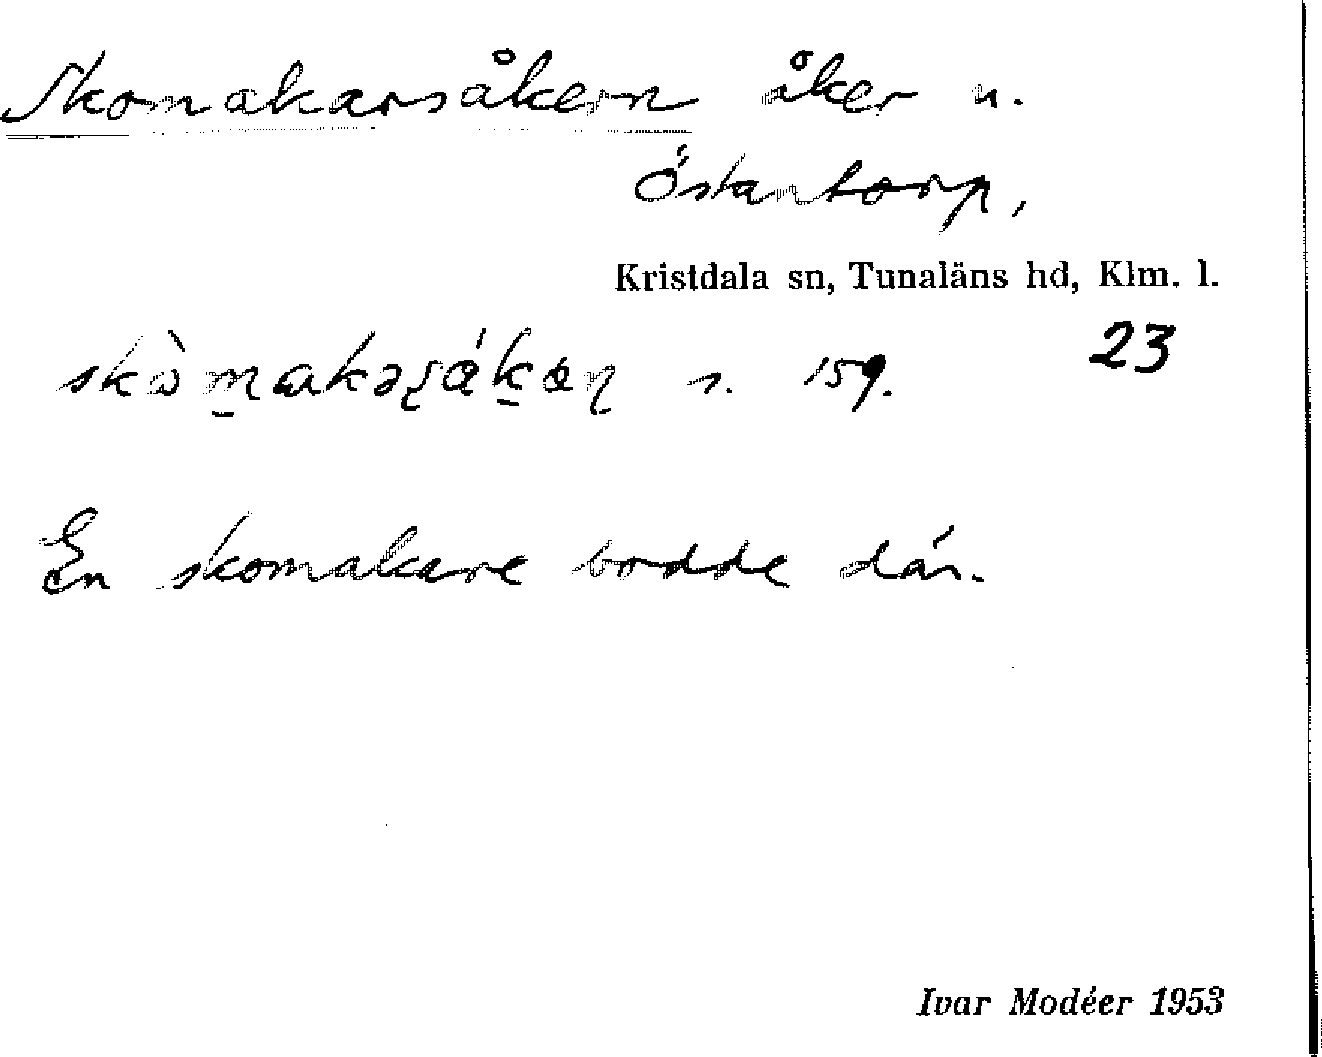 Skomakarsåkern åker u.
Östantorp,
Kristdala sn, Tunaläns hd, Klm. l.
s. 159. 23
En skomakare bodde där.
Ivar Modéer 1953